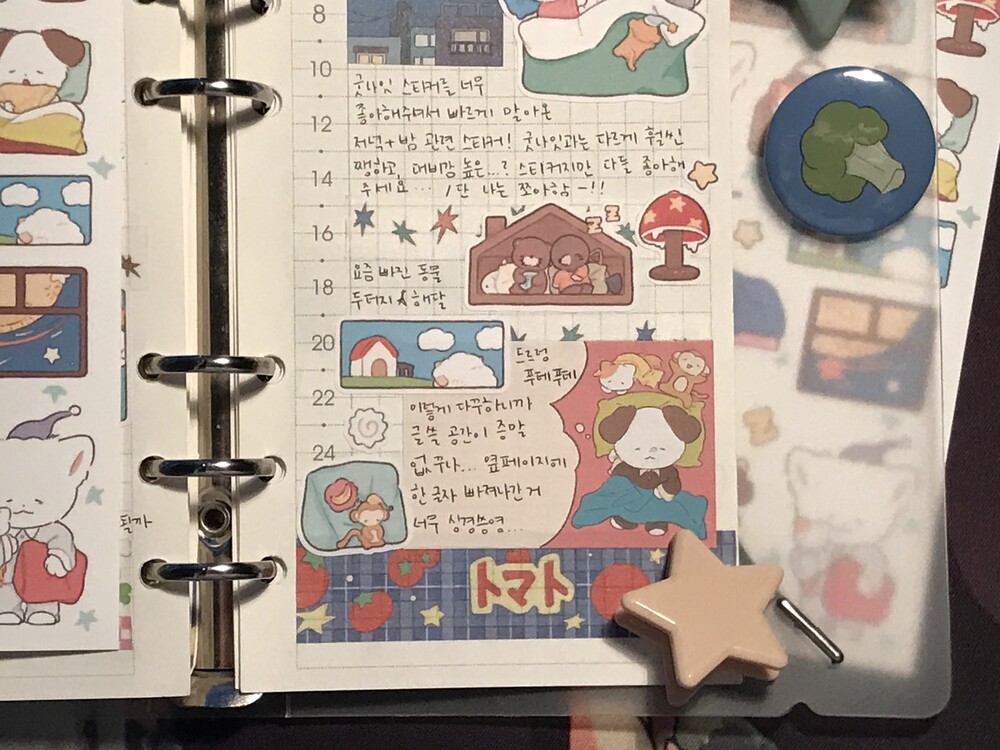 8
10
굿나잇 스티커를 너무
좋아해주셔서 빠르게 말아온
12
저녁+밤 관련 스티커! 굿나잇과는 다르게 훨씬
쨍하고, 대비감 높은...? 스티커지만 다들 좋아해
14
주세요... /단 나는 쪼아함-!!
z z
16
요즘 빠진 동물
18
두더지 & 해달
20
드르렁
푸데푸데
22
이렇게 다꾸하니까
글쓸 공간이 증말
24
없꾸나... 옆페이지에
한 글자 빠져나간 거
너무 생경쓰영...
될까
トマト